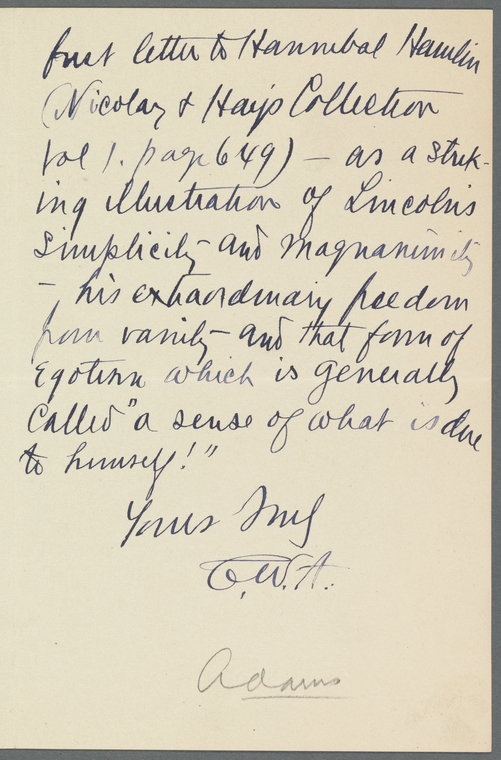 first letter to Hannibal Hamlin
(Nicolay & Hay's Collection
Vol 1. page 649) — as a strik-
ing illustration of Lincoln's
simplicity and magnanimity
— his extraordinary freedom
from vanity and that form of
Egotism which is generally
called "a sense of what is due
to himself!"
Yours Truly
C.W.A.
Adams